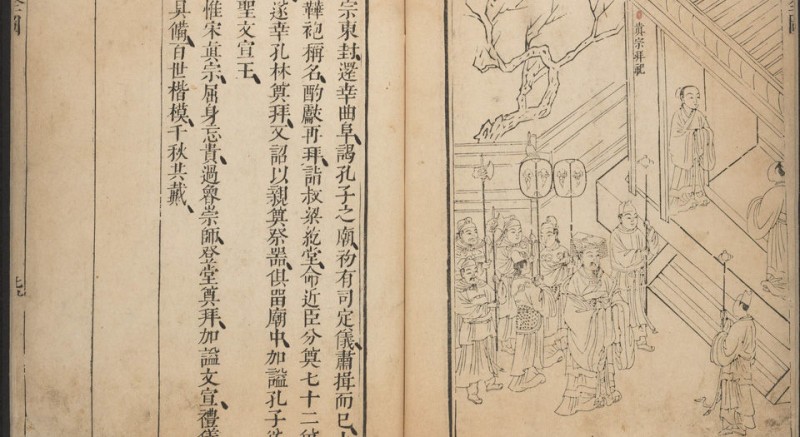 真宗拜祀
宗東封、還幸曲阜、謁孔子之廟、初有司定儀、肅揖而已、
鞾袍稱名、酌獻再拜、詣叔梁紇堂、命近臣分奠七十二
遂幸孔林奠拜、又詔以親奠祭器、俱畱廟中、加謚孔子
聖文宣王、
惟宋真宗、屈身忘貴、過魯崇師、登堂奠拜、加謚文宣、禮儀
具備、百世楷模、千秋共戴、